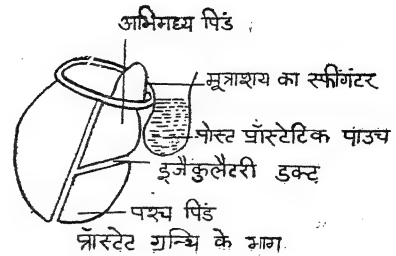 अभिमध्य पिंड
मूत्राशय का स्फींगंटर
पोस्ट प्रॉस्टेटिक पाउच
इजैकुलैटरी डक्ट
पश्च पिंड
प्रॉस्टेट ग्रन्थि के भाग